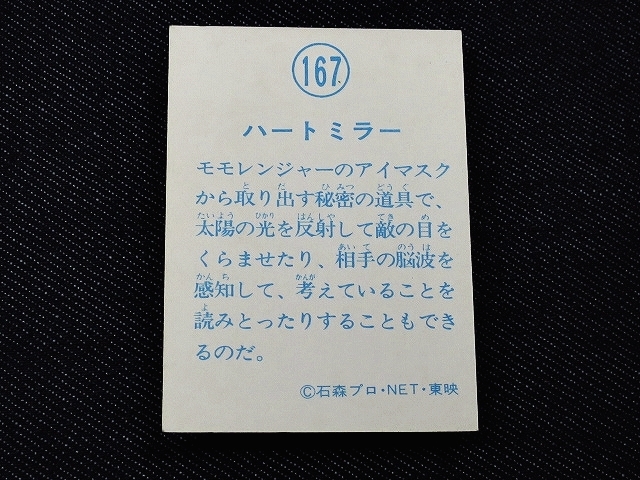 167
ハートミラー
モモレンジャーのアイマスク
から取り出す秘密の道具で、
太陽の光を反射して敵の目を
くらませたり、相手の脳波を
感知して、考えていることを
読みとったりすることもでき
るのだ。
©石森プロ・NET・東映